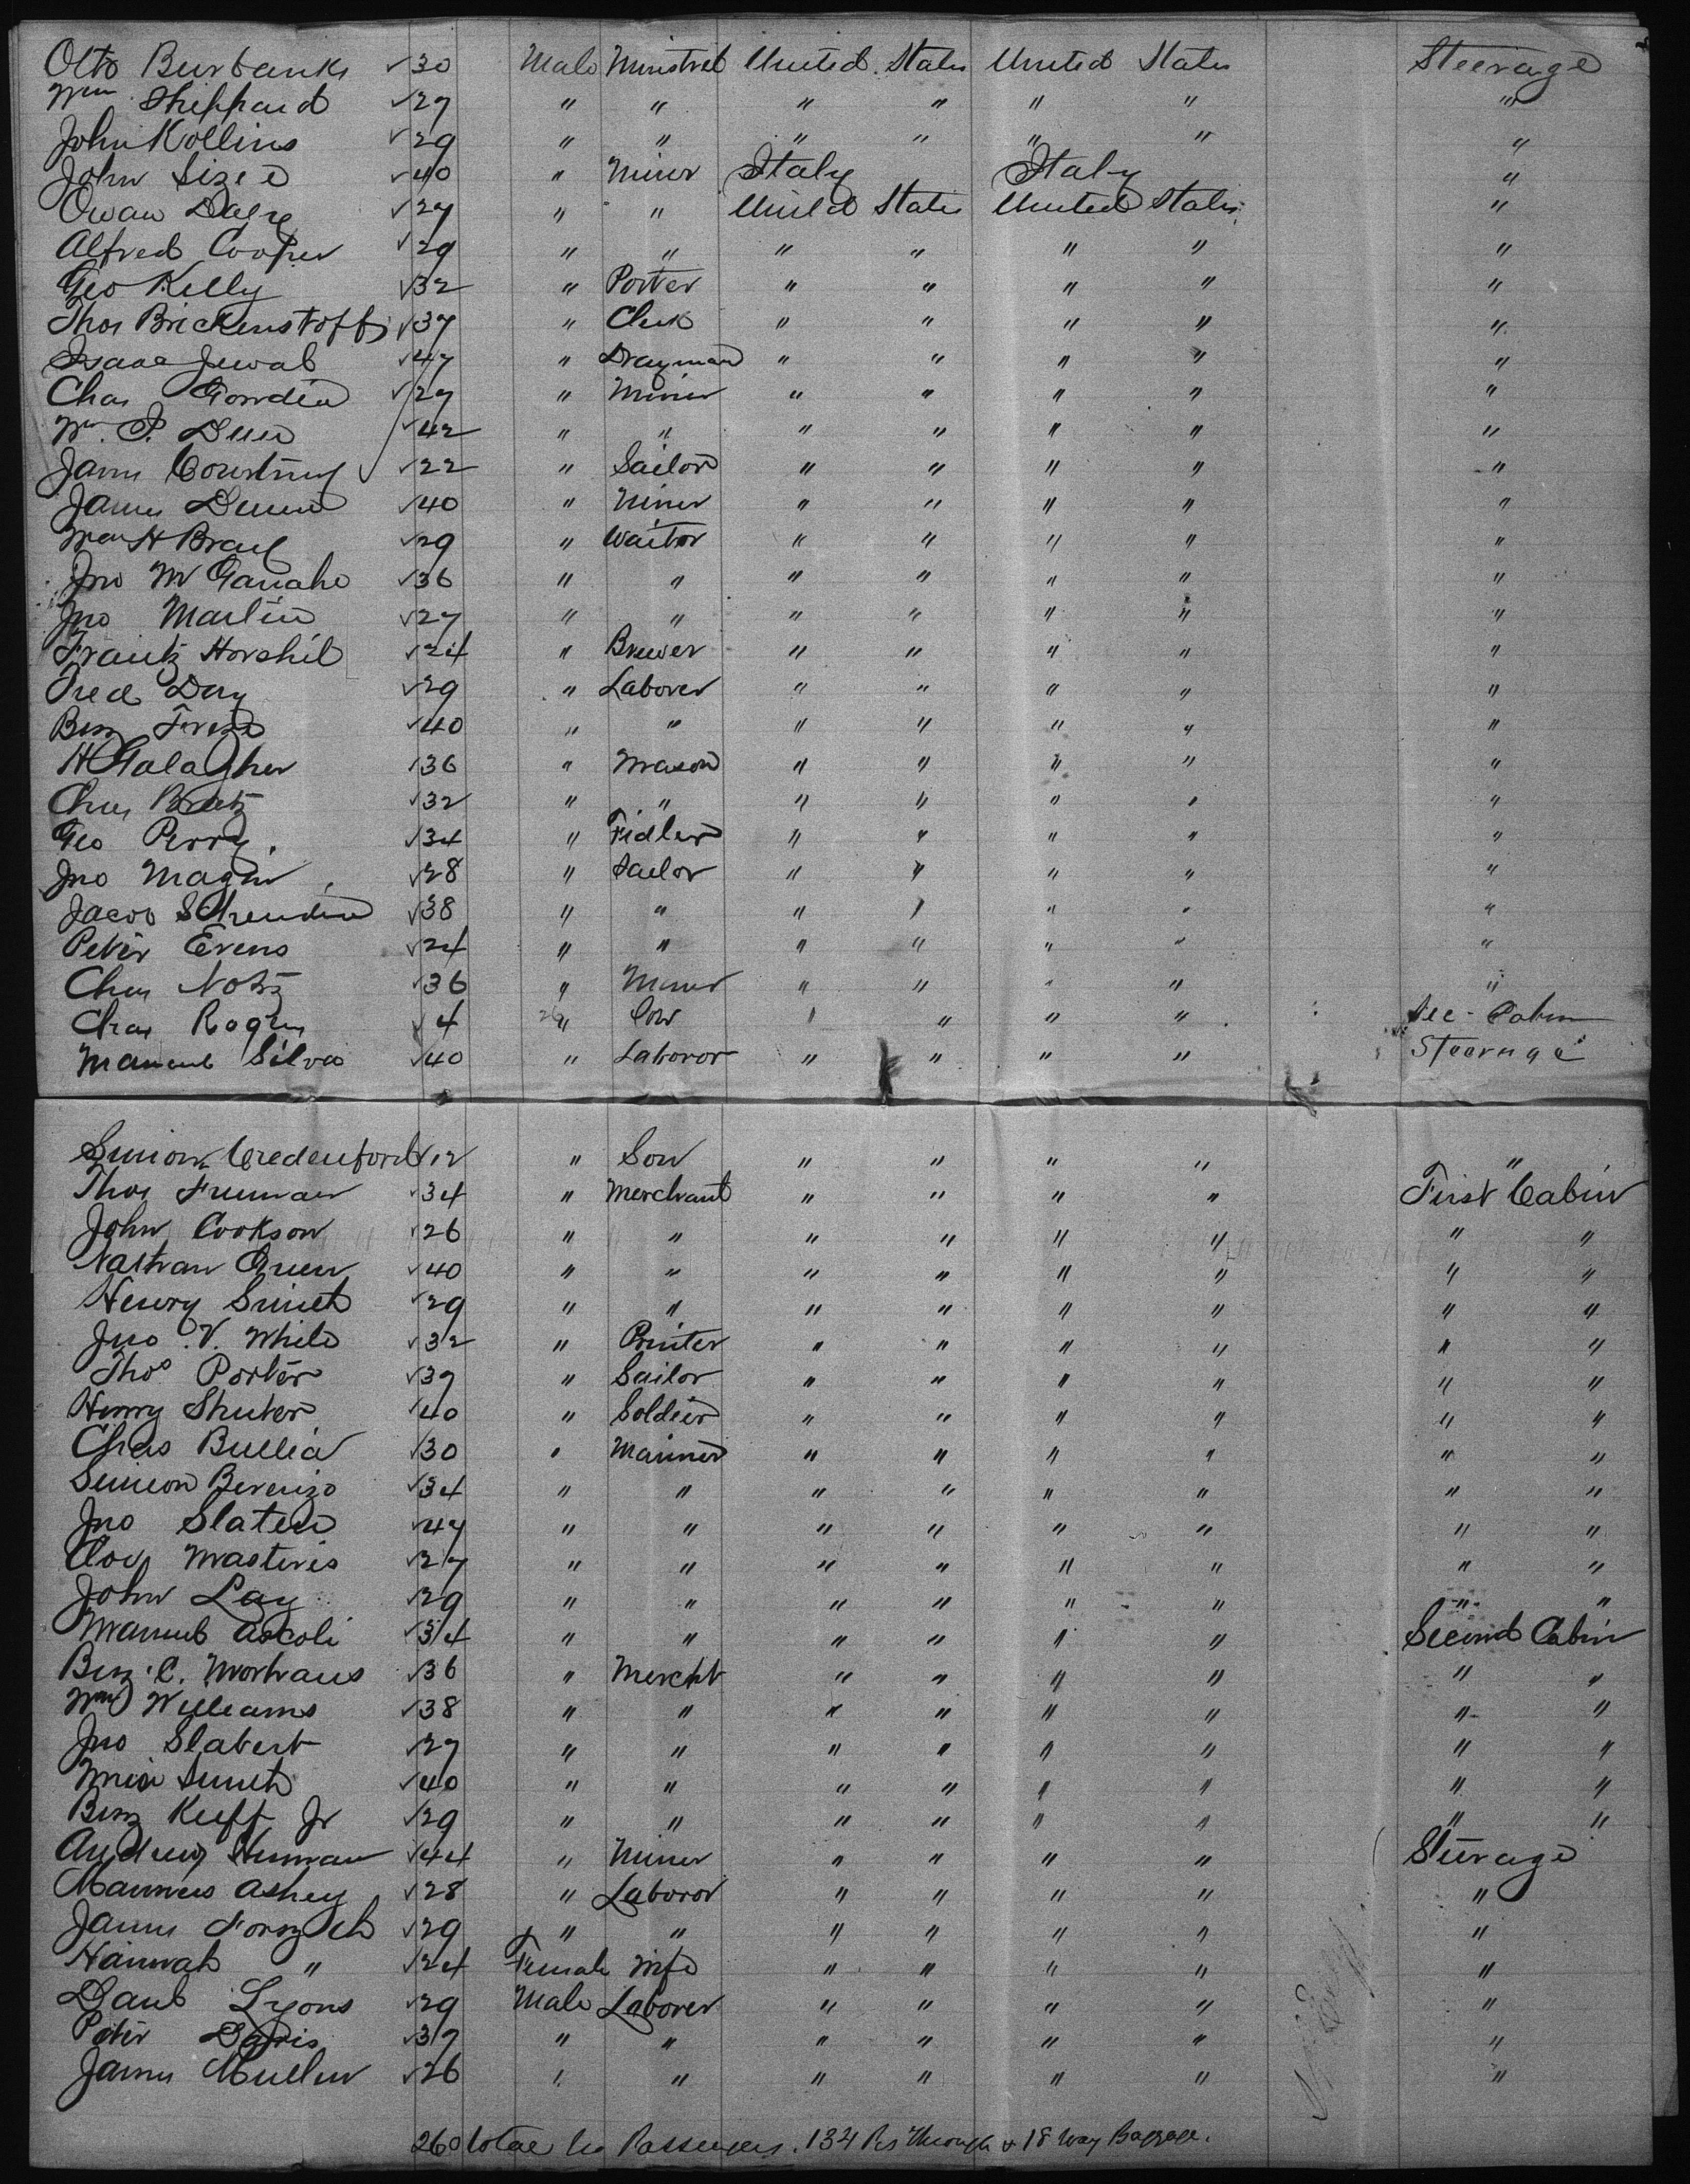 Otto Burbanks √ 30 Male Minstrel United States United States Steerage
Wm Sheppard √ 27 " " " " " " "
John Kollins √ 29 " " " " " " "
John Size √ 40 " Miner Italy Italy "
Owan Daley √ 27 " " United States United States "
Alfred Cooper √ 29 " " " " " " "
Geo Kelly √ 32 " Porter " " " " "
Thos Brickenstoff √ 37 " Clerk " " " " "
Isaac Jewab √ 47 " Drayman " " " " "
Chas Gowdin √ 27 " Miner " " " " "
Wm. P. Dunn √ 42 " " " " " " "
James Courtney √ 22 " Sailor " " " " "
James Dunn √ 40 " Miner " " " " "
Wm H Brady √ 29 " Waitor " " " " "
Jno Mc Ganahe √ 36 " " " " " " "
Jno Martin √ 27 " " " " " " "
Frantz Horshil √ 24 " Brewer " " " " "
Fred Day √ 29 " Laborer " " " " "
Benj √ 40 " " " " " " "
H Galagher √ 36 " Mason " " " " "
Chas Bratz √ 32 " " " " " " "
Geo Perry √ 34 " Fidler " " " " "
Jno Magin √ 28 " Sailor " " " " "
Jacob √ 38 " " " " " " "
Peter Evens √ 24 " " " " " " "
Chas Notz √ 36 " Miner " " " " "
Chas Rogers √ 4 " " " " " Sec - Cabin
Manuel Silva √ 40 " Laboror " " " " Steerage
Simion Credenford √ 12 " Son " " " " "
Thos Freeman √ 34 " Merchant " " " " First Cabin
John Cookson √ 26 " " " " " " " "
Nathan Green √ 40 " " " " " " " "
Henry Smith √ 29 " " " " " " " "
Jno V. White √ 32 " Printer " " " " " "
Thos Porter √ 37 " Sailor " " " " " "
Henry Shuter √ 40 " Soldier " " " " " "
Chas Bullia √ 30 " Mariner " " " " " "
Simeon Berenizo √ 34 " " " " " " " "
Jno Slaten √ 47 " " " " " " " "
Masteris √ 27 " " " " " " " "
John Lay √ 29 " " " " " " " "
Manuel Ascoli √ 34 " " " " " " Second Cabin
Benj. C. Morhaus √ 36 " Mercht " " " " " "
Wm Williams √ 38 " " " " " " " "
Jno Slabert √ 27 " " " " " " " "
Smith √ 40 " " " " " " " "
Benj Kuff Jr √ 29 " " " " " " " "
Andrew Human √ 44 " Miner " " " " Steerage
Manners Ashey √ 28 " Laboror " " " " "
James Forsyth √ 29 " " " " " " "
Hannah " √ 24 Female Wife " " " " "
Danl Lyons √ 29 Male Laborer " " " " "
Peter Davis √ 37 " " " " " " "
James Mullen √ 26 " " " " " " "
260 total No Passengers. 134 Pcs Through & 18 Way Baggage.